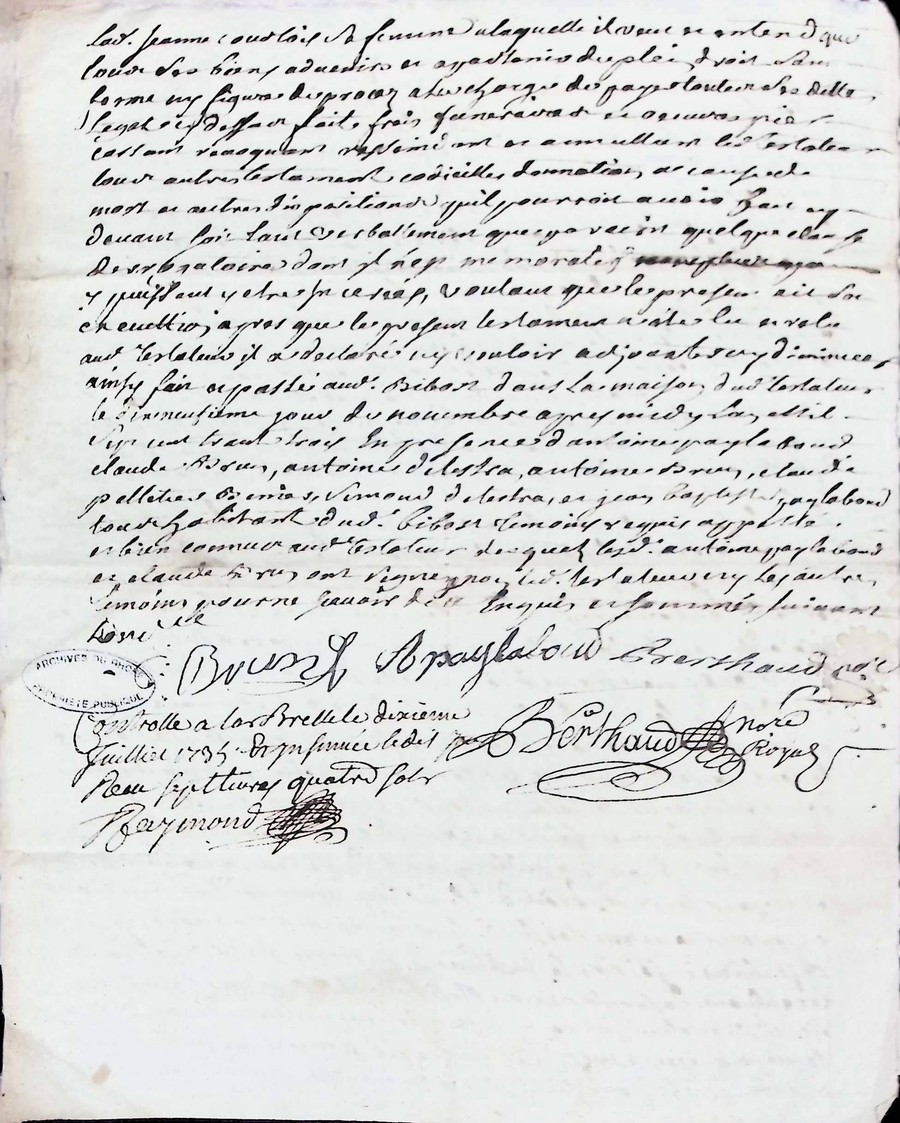 lad. Jeanne courtois sa femme a laquelle il veut et entend que
tous ses biens advenir et apartenir de plei droit sans
forme ny figure de proces a la charge de payer toutes ses dettes
legat cy dessus faits frais funeraires et oeuvres pies
cassant revoquant et annullant led. testateur
tous autres testament codicilles donnations et cause de
mort et autres dispositions quil pourroit avoir fait cy
devant soit tant verballement que par écrit quelque clause
derrogatoire dont il n'est memoratif
y puissent y etre inserées, voulant que le present ait son
execution, apres que le present testament a été lu et relu
aud. testateur il a declaré ny vouloir adjouter ny diminuer,
ainsy fait et passé aud. Bibost dans la maison dud. testateur
le dixneufième jour de novembre apres midy lan mil
sept cent trante trois En presence d'antoine paglaboud
claude Brun, antoine delestra, antoine Brun, claude
pelletier Benias, Simond delestra, et jean baptiste paglaboud
tous habitant dud. bibost temoins requis appellé
et bien connus aud. testateur desquels lesd. antoine paglaboud
et claude Brun ont signé non led. testateur ny les autres
temoins pour ne savoir de ce Enquis et sommés suivant
lord.ce
Brun A paglaboud Berthaud
ARCHIVES DU RHONE
PROPRIETE PUBLIQUE
Controlle a larBrelle le dixieme
Juillet 1735 Et Insinuée ledit jour
Berthaud Nore Royal
Receu sept livres quatre sols
Raymond